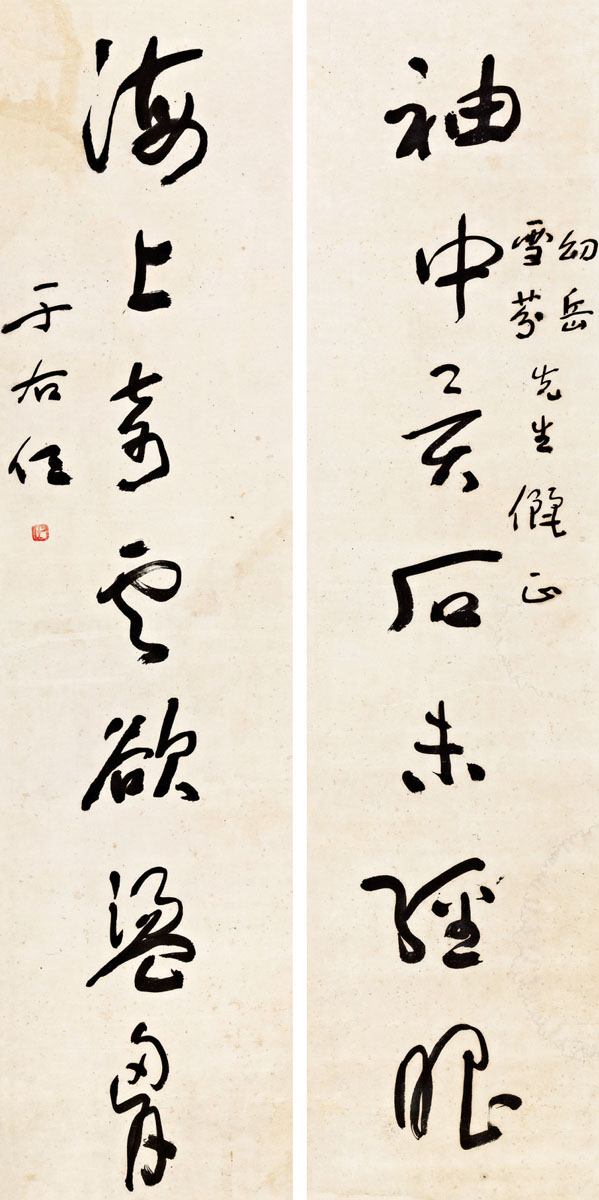 幼岳
雪芬
先生儷正
袖中異石未經眼
海上奇雲欲盪胷
于右任